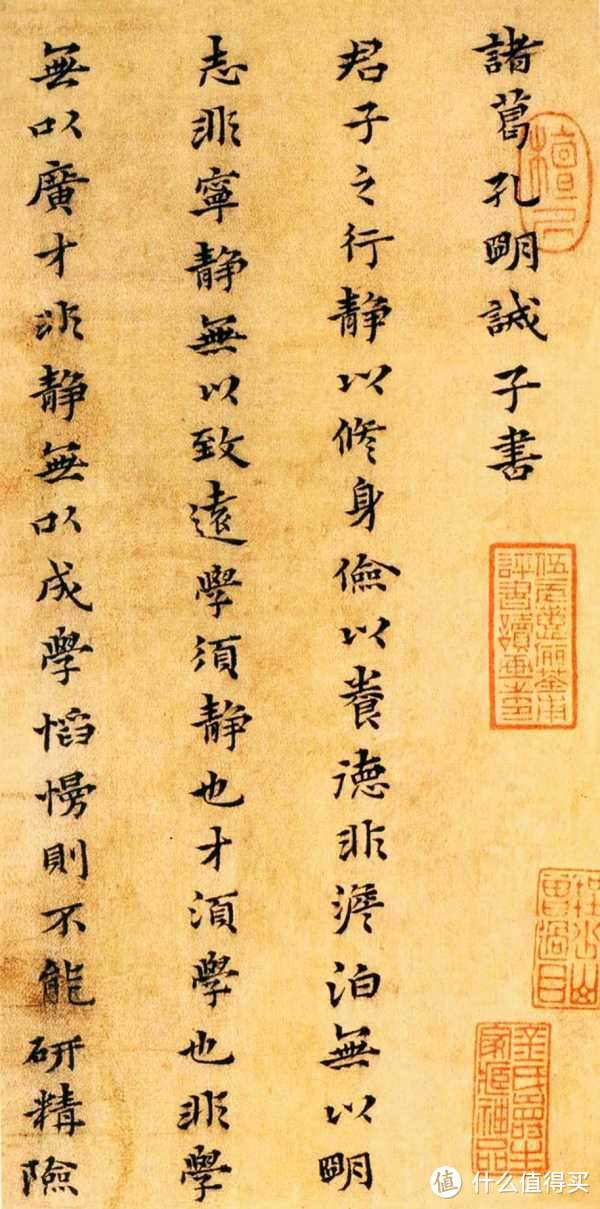 諸葛孔明誡子書
君子之行静以修身儉以養德非澹泊無以明
志非寧静無以致遠學須静也才須學也非學
無以廣才非静無以成學慆慢則不能研精險
值 什么值得买